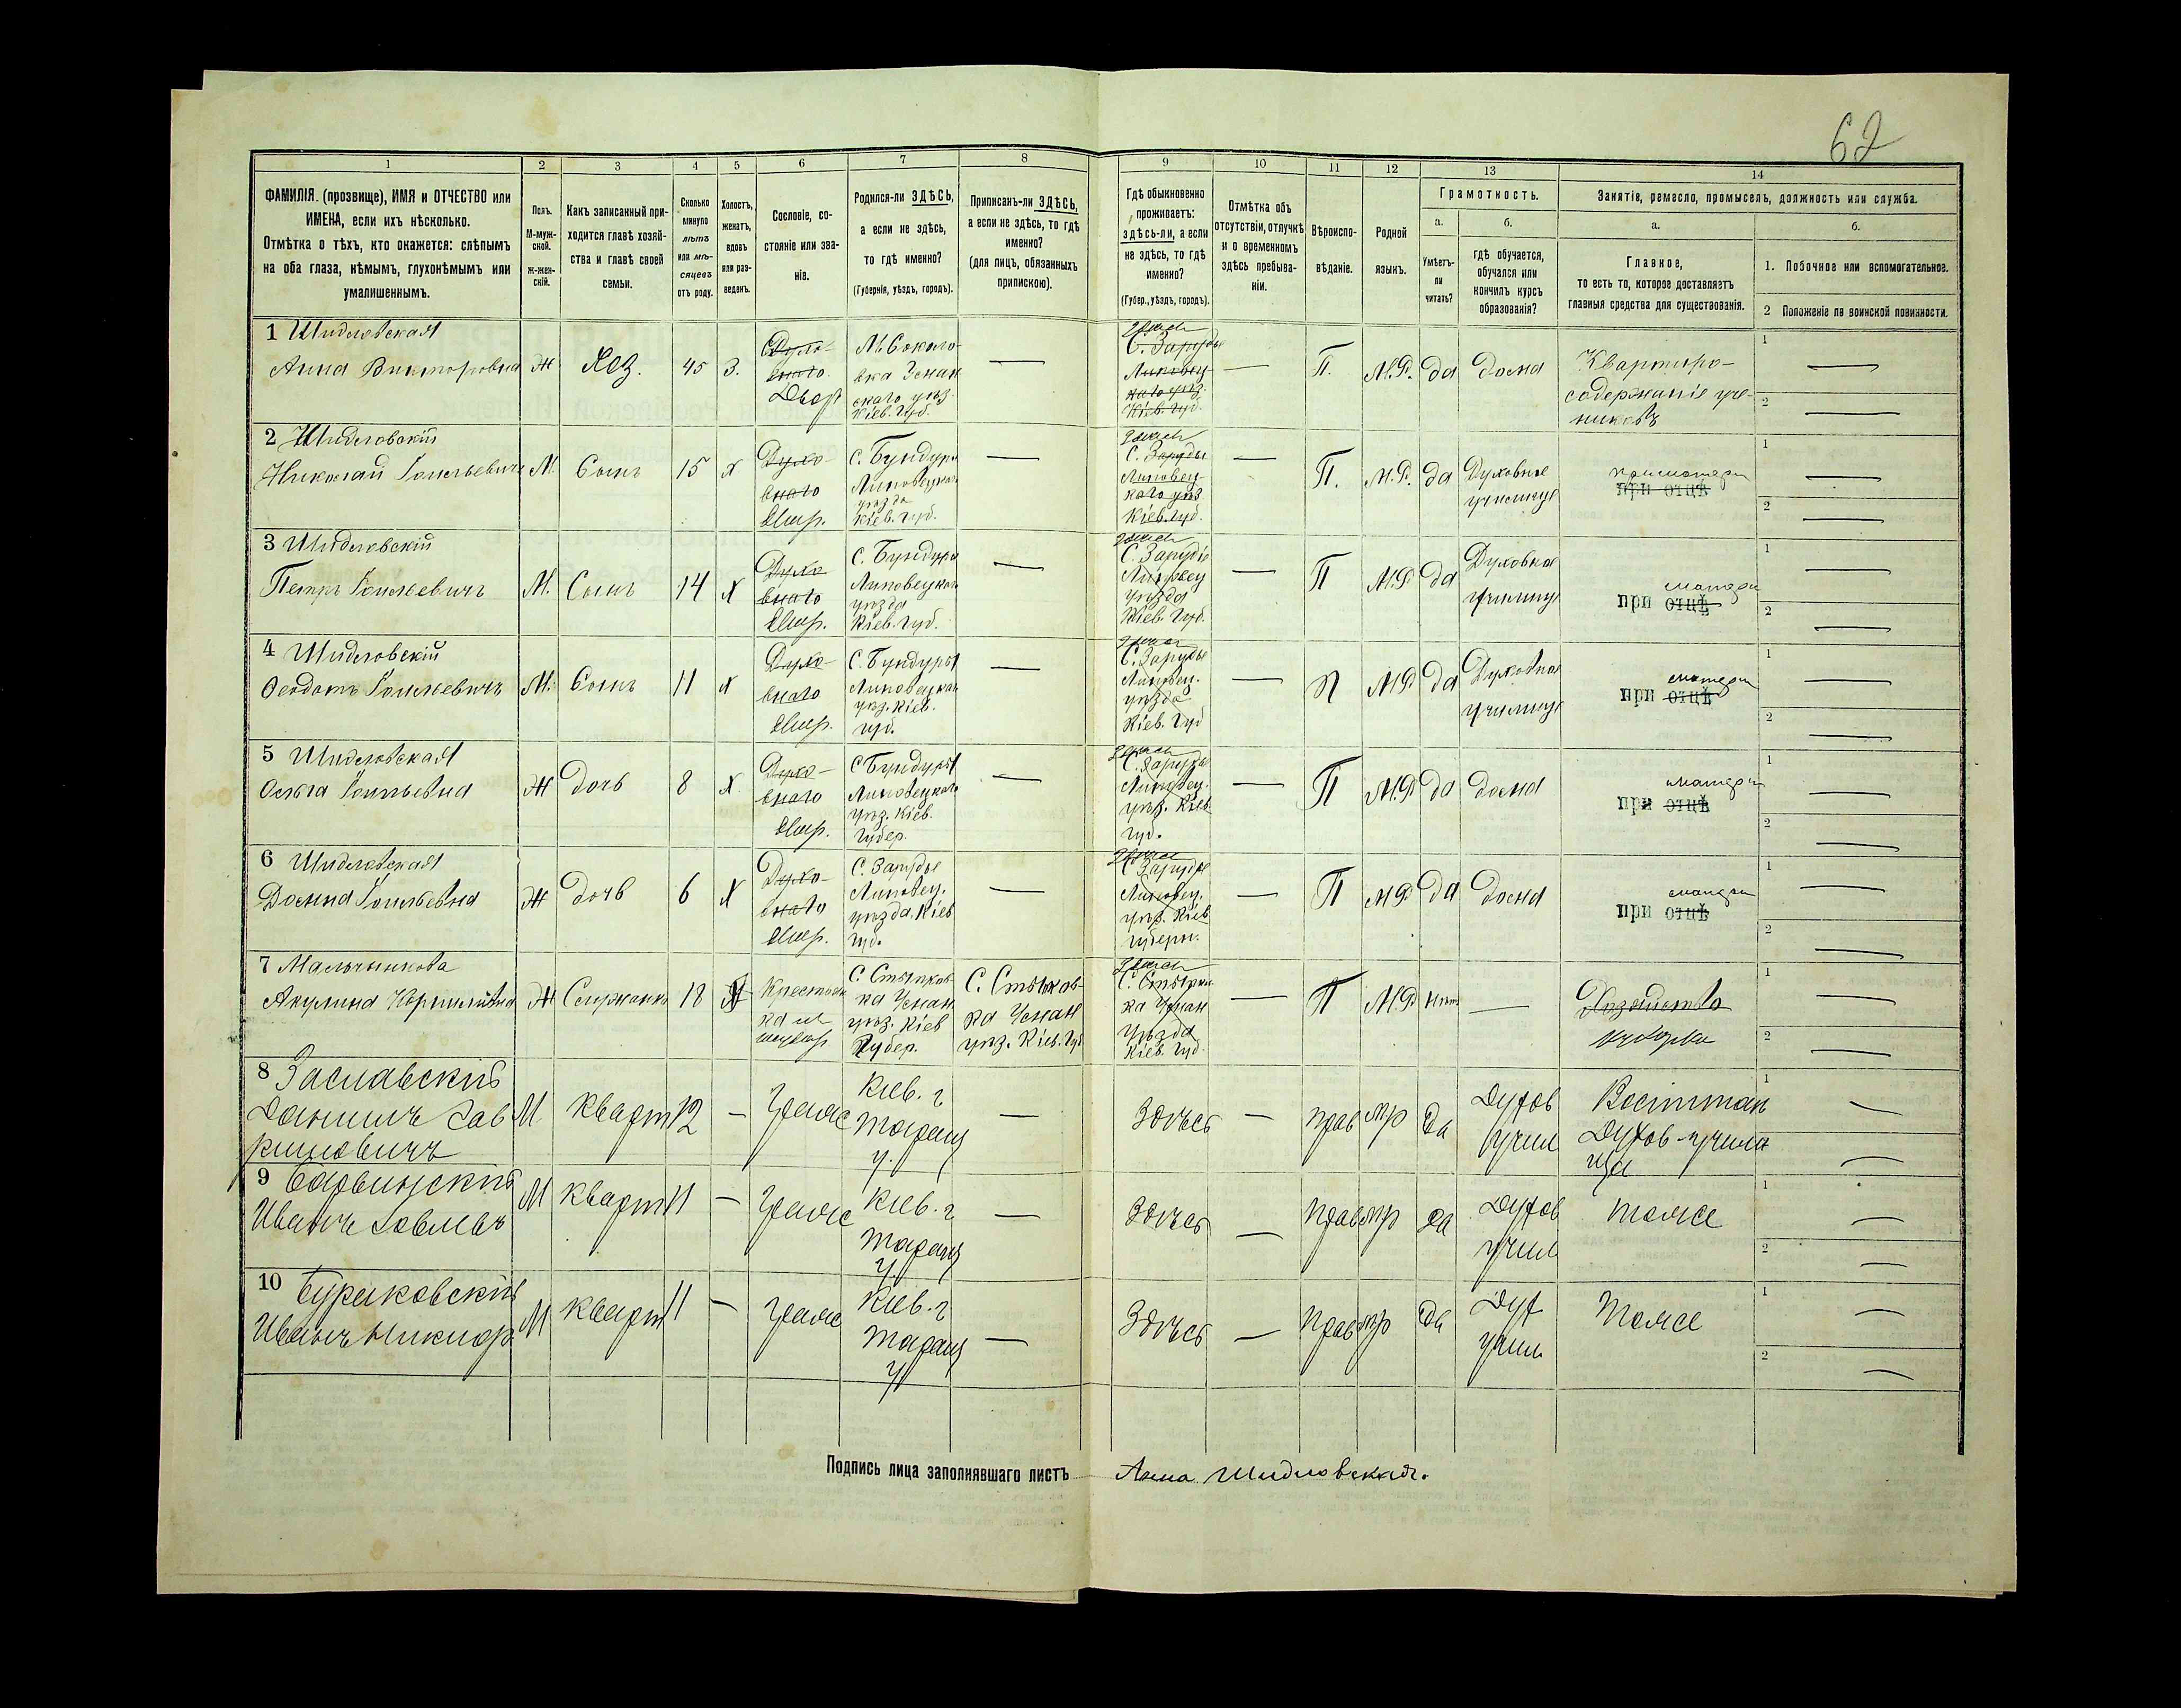 62
1 2 3 4 5 6 7 8 9 10 11 12 13 14
ФАМИЛІЯ. (прозвище), ИМЯ и ОТЧЕСТВО или
ИМЕНА, если ихъ нѣсколько.
Отмѣтка о тѣхъ, кто окажется: слѣпымъ
на оба глаза, нѣмымъ, глухонѣмымъ или
умалишеннымъ.
Полъ.
М-муж-
ской.
ж-жен-
скій.
Какъ записанный при-
ходится главѣ хозяй-
ства и главѣ своей
семьи.
Сколько
минуло
лѣтъ
или мѣ-
сяцевъ
отъ роду.
Холостъ,
женатъ,
вдовъ
или раз-
веденъ.
Сословіе, со-
стояніе или зва-
ніе.
Родился-ли ЗДѢСЬ,
а если не здѣсь,
то гдѣ именно?
(Губернія, уѣздъ, городъ).
Приписанъ-ли ЗДѢСЬ,
а если не здѣсь, то гдѣ
именно?
(для лицъ, обязанныхъ
припискою).
Гдѣ обыкновенно
проживаетъ:
здѣсь-ли, а если
не здѣсь, то гдѣ
именно?
(Губер., уѣздъ, городъ).
Отмѣтка объ
отсутствіи, отлучкѣ
и о временномъ
здѣсь пребыва-
ніи.
Вѣроиспо-
вѣданіе.
Родной
языкъ.
Грамотность.
а.
Умѣетъ-
ли
читать?
б.
гдѣ обучается,
обучался или
кончилъ курсъ
образованія?
Занятіе, ремесло, промыселъ, должность или служба.
а.
Главное,
то есть то, которое доставляетъ
главныя средства для существованія.
б.
1. Побочное или вспомогательное.
2 Положеніе по воинской повинности.
1 Шидловская
Анна Викторовна
Ж
Хоз.
45
З.
Духо-
внаго
Двор
М. Соколо-
вка Уман
скаго уѣз.
Кіев. Губ.
—
С. Зарудье
Липовец
каго уѣз.
Кіев. Губ.
—
П.
М.Р.
да
дома
Квартиро-
содержаніе уче-
никовъ
1 —
2 —
2 Шидловскій
Николай
М.
Сынъ
15
х
Духо-
внаго
С. Бундуры
Липовецкаго
уѣзда
Кіев. Губ.
—
С. Зарудье
Липовец-
каго уѣз
Кіев. Губ.
—
П.
М.Р.
да
Духовное
училище
при отцѣ
1 —
2 —
3 Шидловскій
Петръ
М.
Сынъ
14
х
Духо
внаго
С. Бундуры
Липовецкаго
уѣзда
Кіев. Губ.
—
С. Зарудіе
Липовец
уѣзда
Кіев. Губ.
—
П
М.Р
да
Духовное
училище
матери
при отцѣ
1 —
2 —
4 Шидловскій
Ѳеодотъ
М.
Сынъ
11
х
Духо-
внаго
С. Бундуры
Липовецкаго
уѣз. Кіев.
губ.
—
С. Зарудье
Липовец.
уѣзда
Кіев. Губ
—
П
М.Р
да
Духовное
училище
матери
при отцѣ
1 —
2 —
5 Шидловская
Ольга
Ж
дочь
8
х
Духо-
внаго
С Бундуры
Липовецкаго
уѣз. Кіев.
Губер.
—
С. Зарудье
Липовец.
уѣз. Кіев
губ.
—
П
М.Р
да
дома
матери
при отцѣ
1 —
2 —
6 Шидловская
Домна
Ж
дочь
6
х
Духо-
внаго
С. Зарудье
Липовец.
уѣзда, Кіев
губ.
—
С. Зарудье
Липовец.
уѣз. Кіев
губерн.
—
П
М.Р
да
дома
матери
при отцѣ
1 —
2 —
7 Мальчинкова
Акулина
Ж
Служанка
18
Крестьян
ка
С.
ка Уман
уѣз. Кіев
Губер.
С.
ка Уман
уѣз. Кіев. Губ
С.
ка Уман
Уѣзда
Кіев. Губ.
—
П
М.Р
нѣтъ
—
Хозяйство
1 —
2 —
8 Заславскій
Даніилъ Сав
М
Кварт
12
—
Кіев. г
Таращ
у.
—
Здѣсь
—
прав
мр
да
Духов
учил
Воспитан
Духов-учили
ща
1 —
—
9 Барвинскій
Иванъ
М
Кварт
11
—
Кіев. г
Таращ
у.
—
Здѣсь
—
прав
мр
да
Духов
учил
тоже
1 —
2 —
10 Бураковскій
Иванъ Никиф
М
Кварт
11
—
Кіев. г
Таращ
у
—
Здѣсь
—
прав
мр
да
Дух
учил
Тоже
1 —
2 —
Подпись лица заполнявшаго листъ Анна Шидловская.